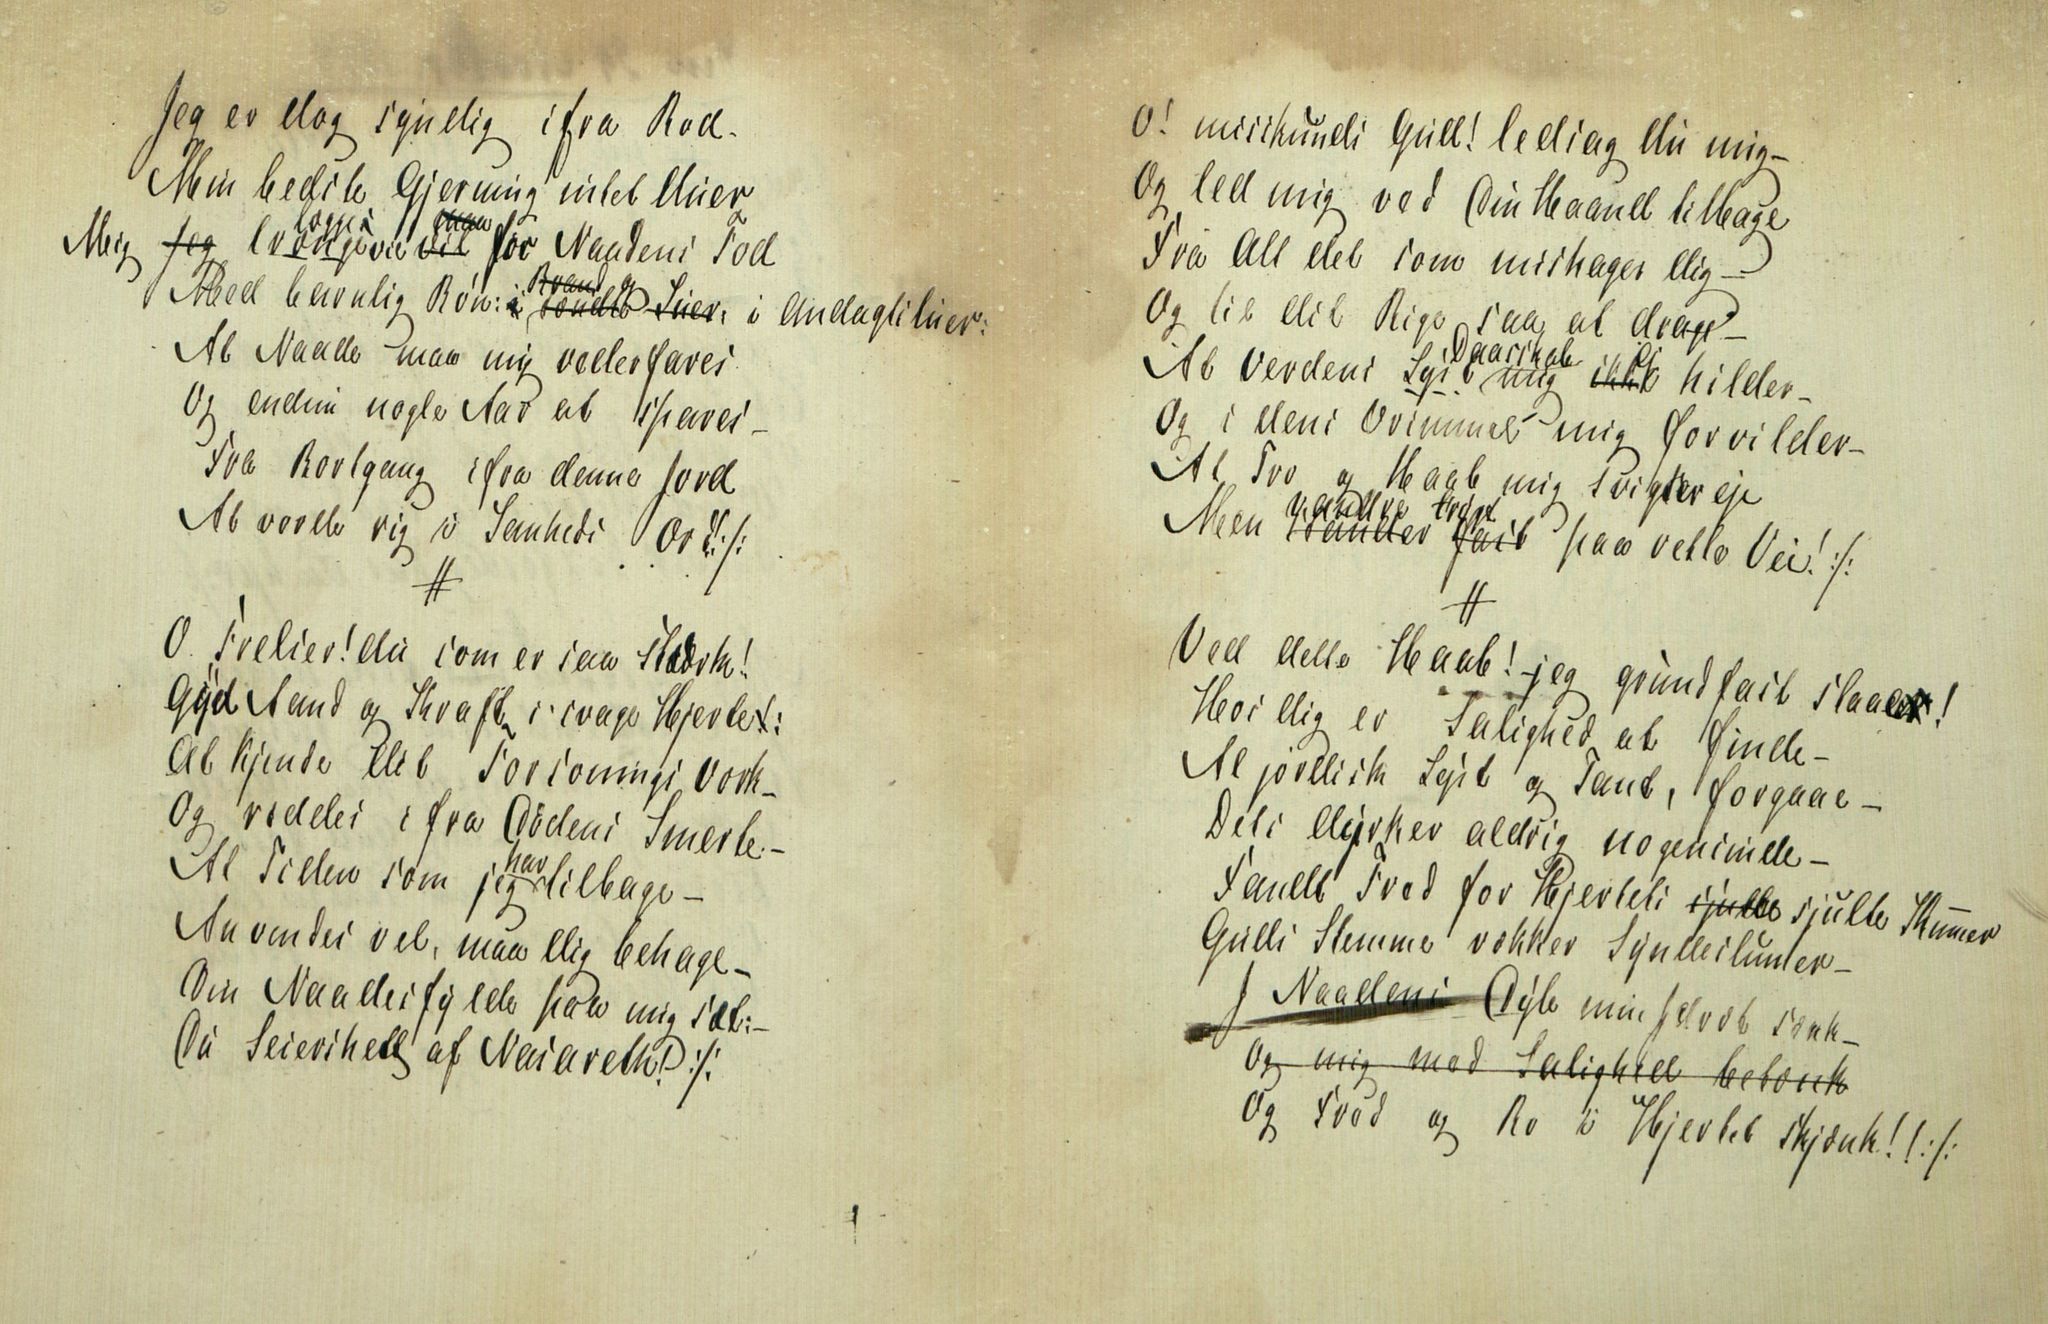 Jeg er dog syndig ifra Rod.
Min bedste Gjerning intet duer
Mig Jeg trænge vil for Naadens Fod
lægge maa
Med barnlig Bön: i tændte Luer, i Andagtsluer:
Brand og
At Naade maa mig vederfares
Og endnu nogle Aar at spares –
Fra Bortgang ifra denne Jord
At vorde rig i Sanheds Ord!:/:
#
O Frelser! du som er saa stærk!
Gyd Aand og Kraft i svage Hjerte:
At kjende dit Forsonings Værk –
Og reddes ifra Dödens Smerte –
Al Tiden som jeg har tilbage –
Anvendes vel, maa dig behage –
Din Naadesfylde paa mig set:–
Du Seiershelt af Nasareth!:/:
O! miskunds Gud! ledsag du mig –
Og led mig ved Din Haand tilbage
Fra Alt det som mishager dig –
Og til dit Rige saa at drage –
At Verdens Lyst mig ikke hilder –
Daarskab ei
Og i dens Vrimmel mig forvilder –
At Tro og Haab mig svigter ej
Men vandrer fast paa rette Vei!:/:
vandre trøst
#
Ved dette Haab! jeg grundfast staaer!
Hos dig er Salighed at finde –
Al jordisk Lyst og Tant, forgaae –
Dets dyrker aldrig nogensinde –
Sandt Fred for Hjertets sjulte sjulte Kummer
Guds Stemme vækker Syndeslumer –
J Naadens Dyb min Jdræt sænk –
Og mig med Salighed betænk
Og Fred og Ro i Hjertet skjænk!!:/: